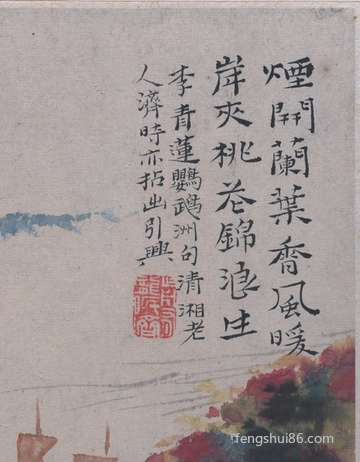 煙開蘭葉香風暖
岸夾桃花錦浪生
李青蓮鸚鵡洲句清湘老
人濟時亦拈出引興
fengshui86.com